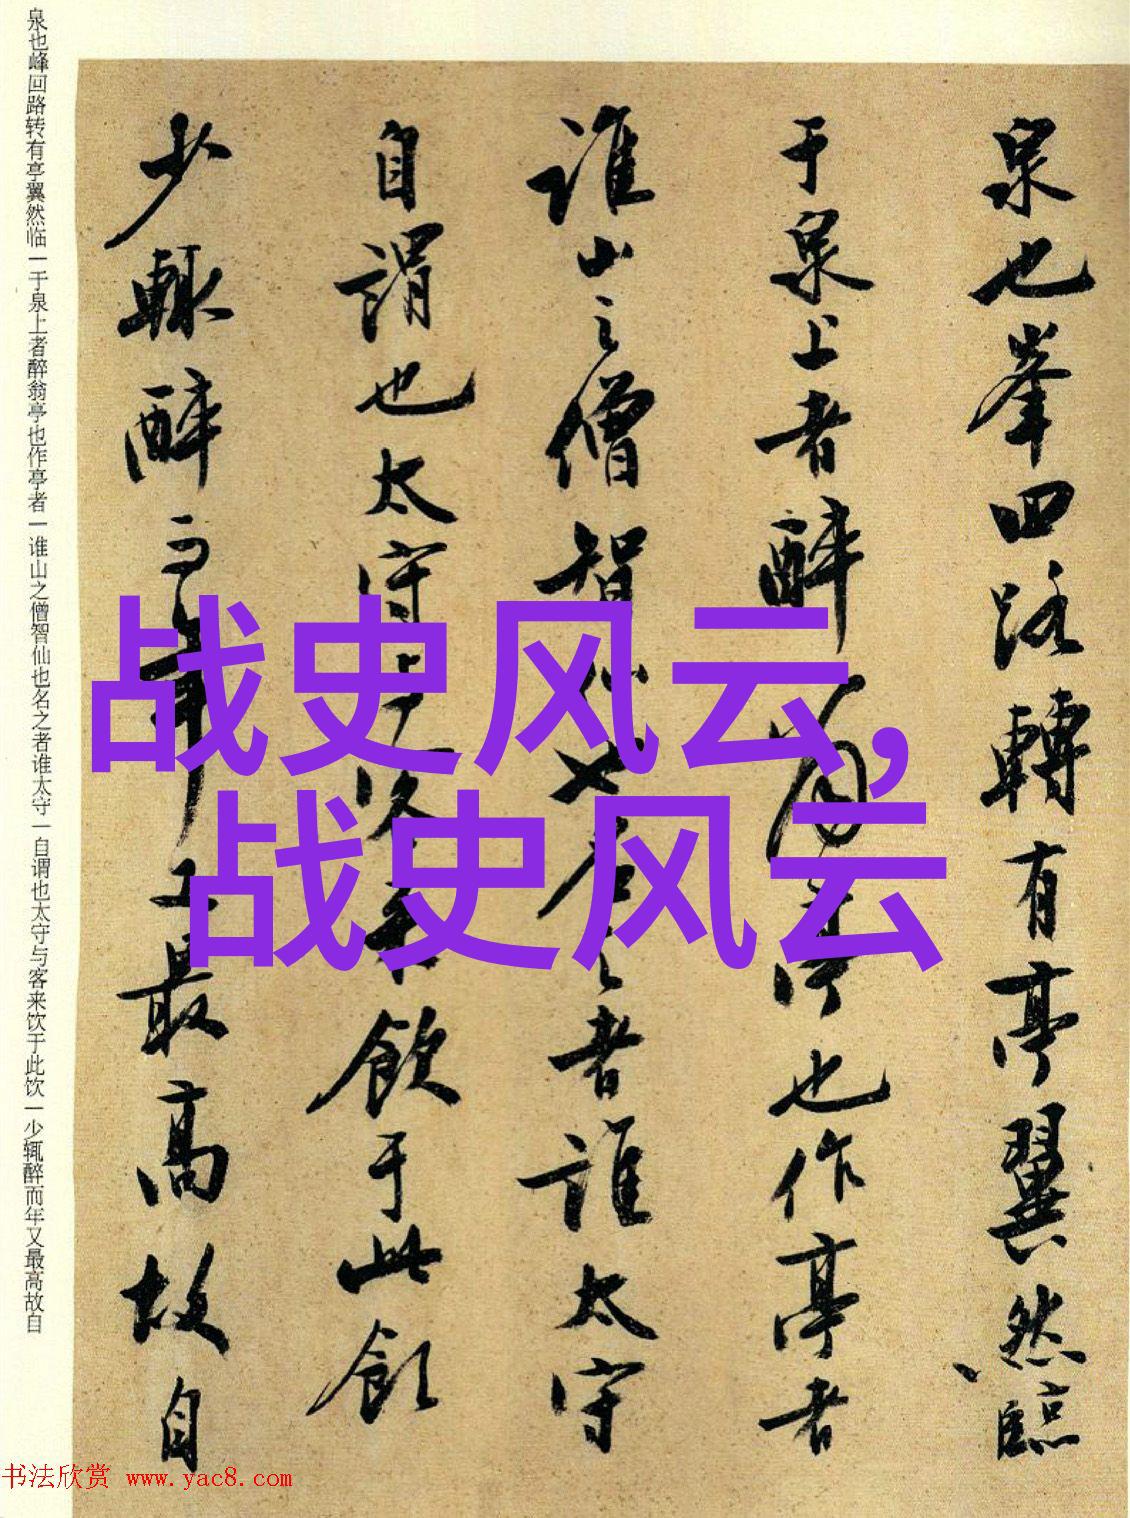 泉也峯回路轉有亭翼然臨
于泉上者醉翁亭也作亭者
誰山之僧智仙也名之者誰太守
自謂也太守与客来飲于此飲
少輒醉而年又最高故自
泉也峰回路转有亭翼然临一于泉上者醉翁亭也作亭者一谁山之僧智仙也名之者谁太守一自谓也太守与客来饮于此饮一少辄醉而年又最高故自
战史风云,
战史风云
书法欣赏 www.yac8.com